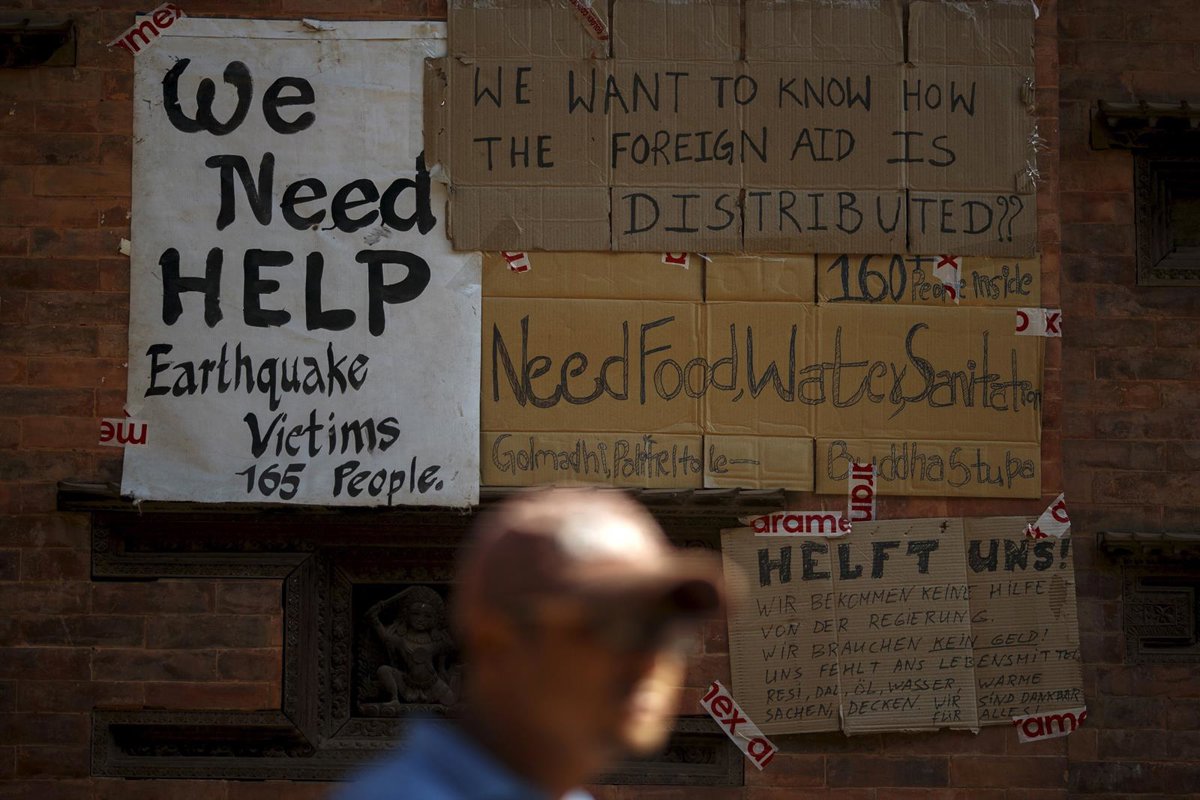 We
Need
HELP
Earthquake
Victims
165 People.
WE WANT TO KNOW HOW
THE FOREIGN AID IS
DISTRIBUTED??
160+ People inside
Need Food, Water, Sanitation
Golmadhi, Buddha Stupa
HELFT UNS!
WIR BEKOMMEN KEINE HILFE
VON DER REGIERUNG.
WIR BRAUCHEN KEIN GELD!
UNS FEHLT ANS LEBENSMITTEL
RESI, DAL, ÖL, WASSER, WARME
SACHEN, DECKEN WIR SIND DANKBAR
FÜR ALLES!
amex
me
x
arame
aram
x
nex a
rame